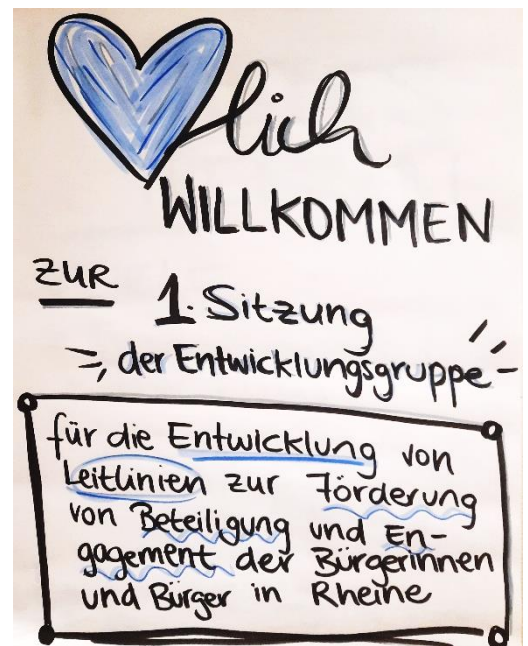 lich
WILLKOMMEN
ZUR
1. Sitzung
der Entwicklungsgruppe
für die Entwicklung von
Leitlinien zur Förderung
von Beteiligung und En-
gagement der Bürgerinnen
und Bürger in Rheine